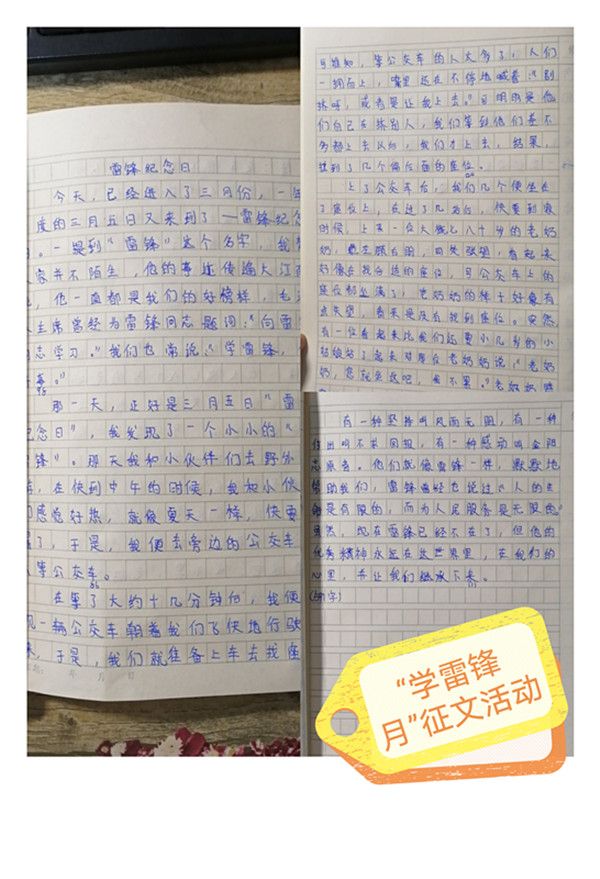 雷锋纪念日
今天,已经进入了三月份,一年
度的三月五日又来到了——雷锋纪念
。一提到“雷锋”这个名字,我
家并不陌生,他的事迹传遍大江
,他一直都是我们的好榜样,毛
主席曾经为雷锋同志题词:“向雷
同志学习。”我们也常说:“学雷锋,
那一天,正好是三月五日“雷
纪念日”,我发现了一个小小的“
锋”。那天我和小伙伴们去野外
,在快到中午的时候,我和小伙
们感觉好热,就像夏天一样,快要
了,于是,我便去旁边的公交车
等公交车。
86
在等了大约十几分钟后,我便
一辆公交车朝着我们飞快地行驶
来,于是,我们就准备上车去找座
年 月 日
可谁知,等公交车的人太多了,人们
一拥而上,嘴里还在不停地喊着:“别
挤呀,或者是让我上去。”可明明是他
们自己在挤别人,我们等到他们差不
多都上去以后,我们才上去,结果,
找到了几个偏后面的座位。
上了公交车后,我们几个便坐在
了座位上,在过了几站后,快要到家
时候,上来一位大概七八十岁的老奶
奶,她左顾右盼,四处张望,看起来
好像在找合适的座位,可公交车上的
座位都坐满了,老奶奶的样子好像有
点失望,看来是没有找到座位。突然,
有一位看起来比我们还要小几岁的小
姑娘站了起来对那位老奶奶说:“老奶
奶,您就坐这吧,我不累。”老奶奶
有一种坚持叫风而无阻,有一种
付出叫不求回报,有一种感动叫金阳
志愿者。他们就像雷锋一样,默默地
帮助我们,雷锋曾经也说过:“人的生
命是有限的,而为人民服务是无限的。”
虽然,现在雷锋已经不在了,但他的
优秀精神永远在这世界里,在我们的
心里,并让我们继承下来。
“学雷锋
月”征文活动